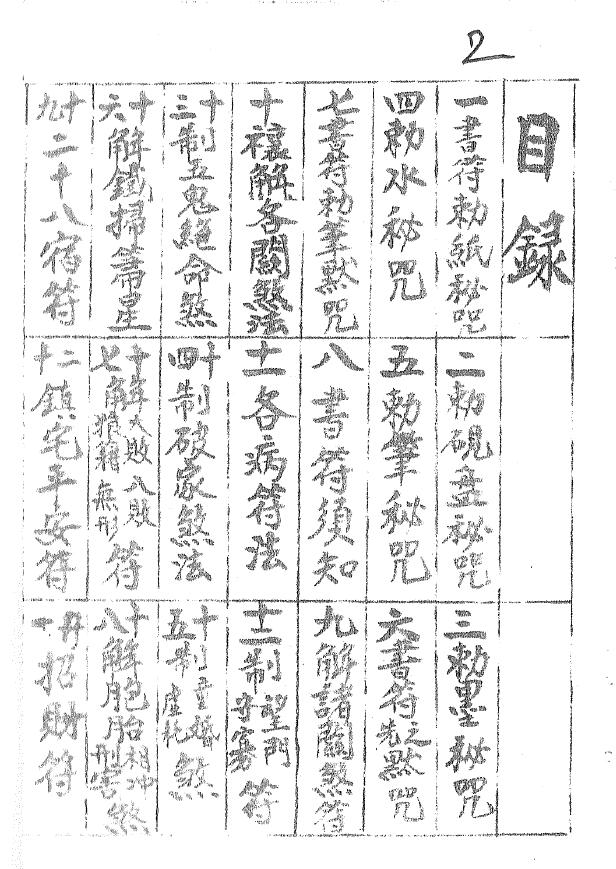 2
目錄
一書符勅紙秘咒
二勅硯盘秘咒
三勅墨秘咒
四勅水秘咒
五勅筆秘咒
六書符之先默咒
七書符勅筆默咒
八書符須知
九解諸關煞符
十禳解各關煞法
十一各病符法
十二制望門守寡符
十三制五鬼絕命煞
十四制破家煞法
十五制重婚虛耗煞
十六解鐵掃帚星
十七解大敗八敗狼籍無形符
十八解胞胎相冲刑害煞
十九二十八宿符
二十鎮宅平安符
廿十招財符